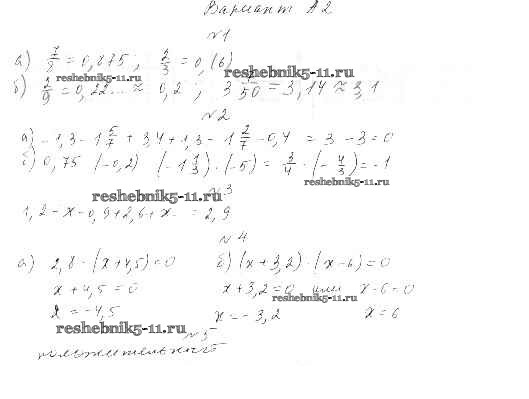 Вариант А2
№1
а) 7/8 = 0,875; 2/3 = 0,(6)
reshebnik5-11.ru reshebnik5-11.ru
б) 2/9 = 0,22... ≈ 0,2; 3 7/50 = 3,14 ≈ 3,1
№2
а) -1,3 - 1 5/7 + 3,4 + 1,3 - 1 2/7 - 0,4 = 3 - 3 = 0
б) 0,75 (-0,2) (-1 1/3) · (-5) = 3/4 · (-4/3) = -1
reshebnik5-11.ru
reshebnik5-11.ru
№3
1,2 - x - 0,9 + 2,6 + x = 2,9
№4
а) 2,8 · (x+4,5) = 0 б) (x+3,2) · (x-6) = 0
x + 4,5 = 0 x + 3,2 = 0 или x-6=0
reshebnik5-11.ru
x = -4,5 x = -3,2 x = 6
reshebnik5-11.ru
№5